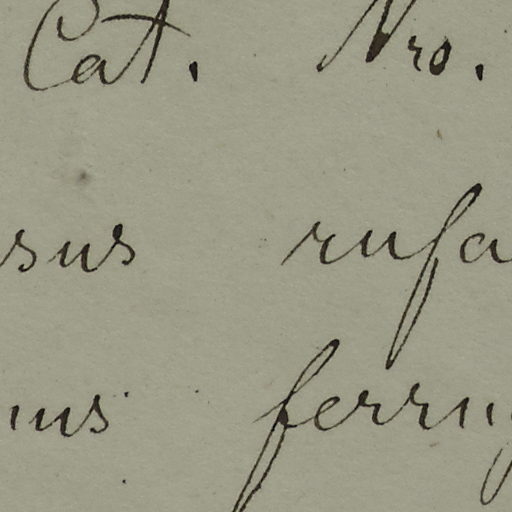 Cat. Nro.
sus rufa
nus ferru